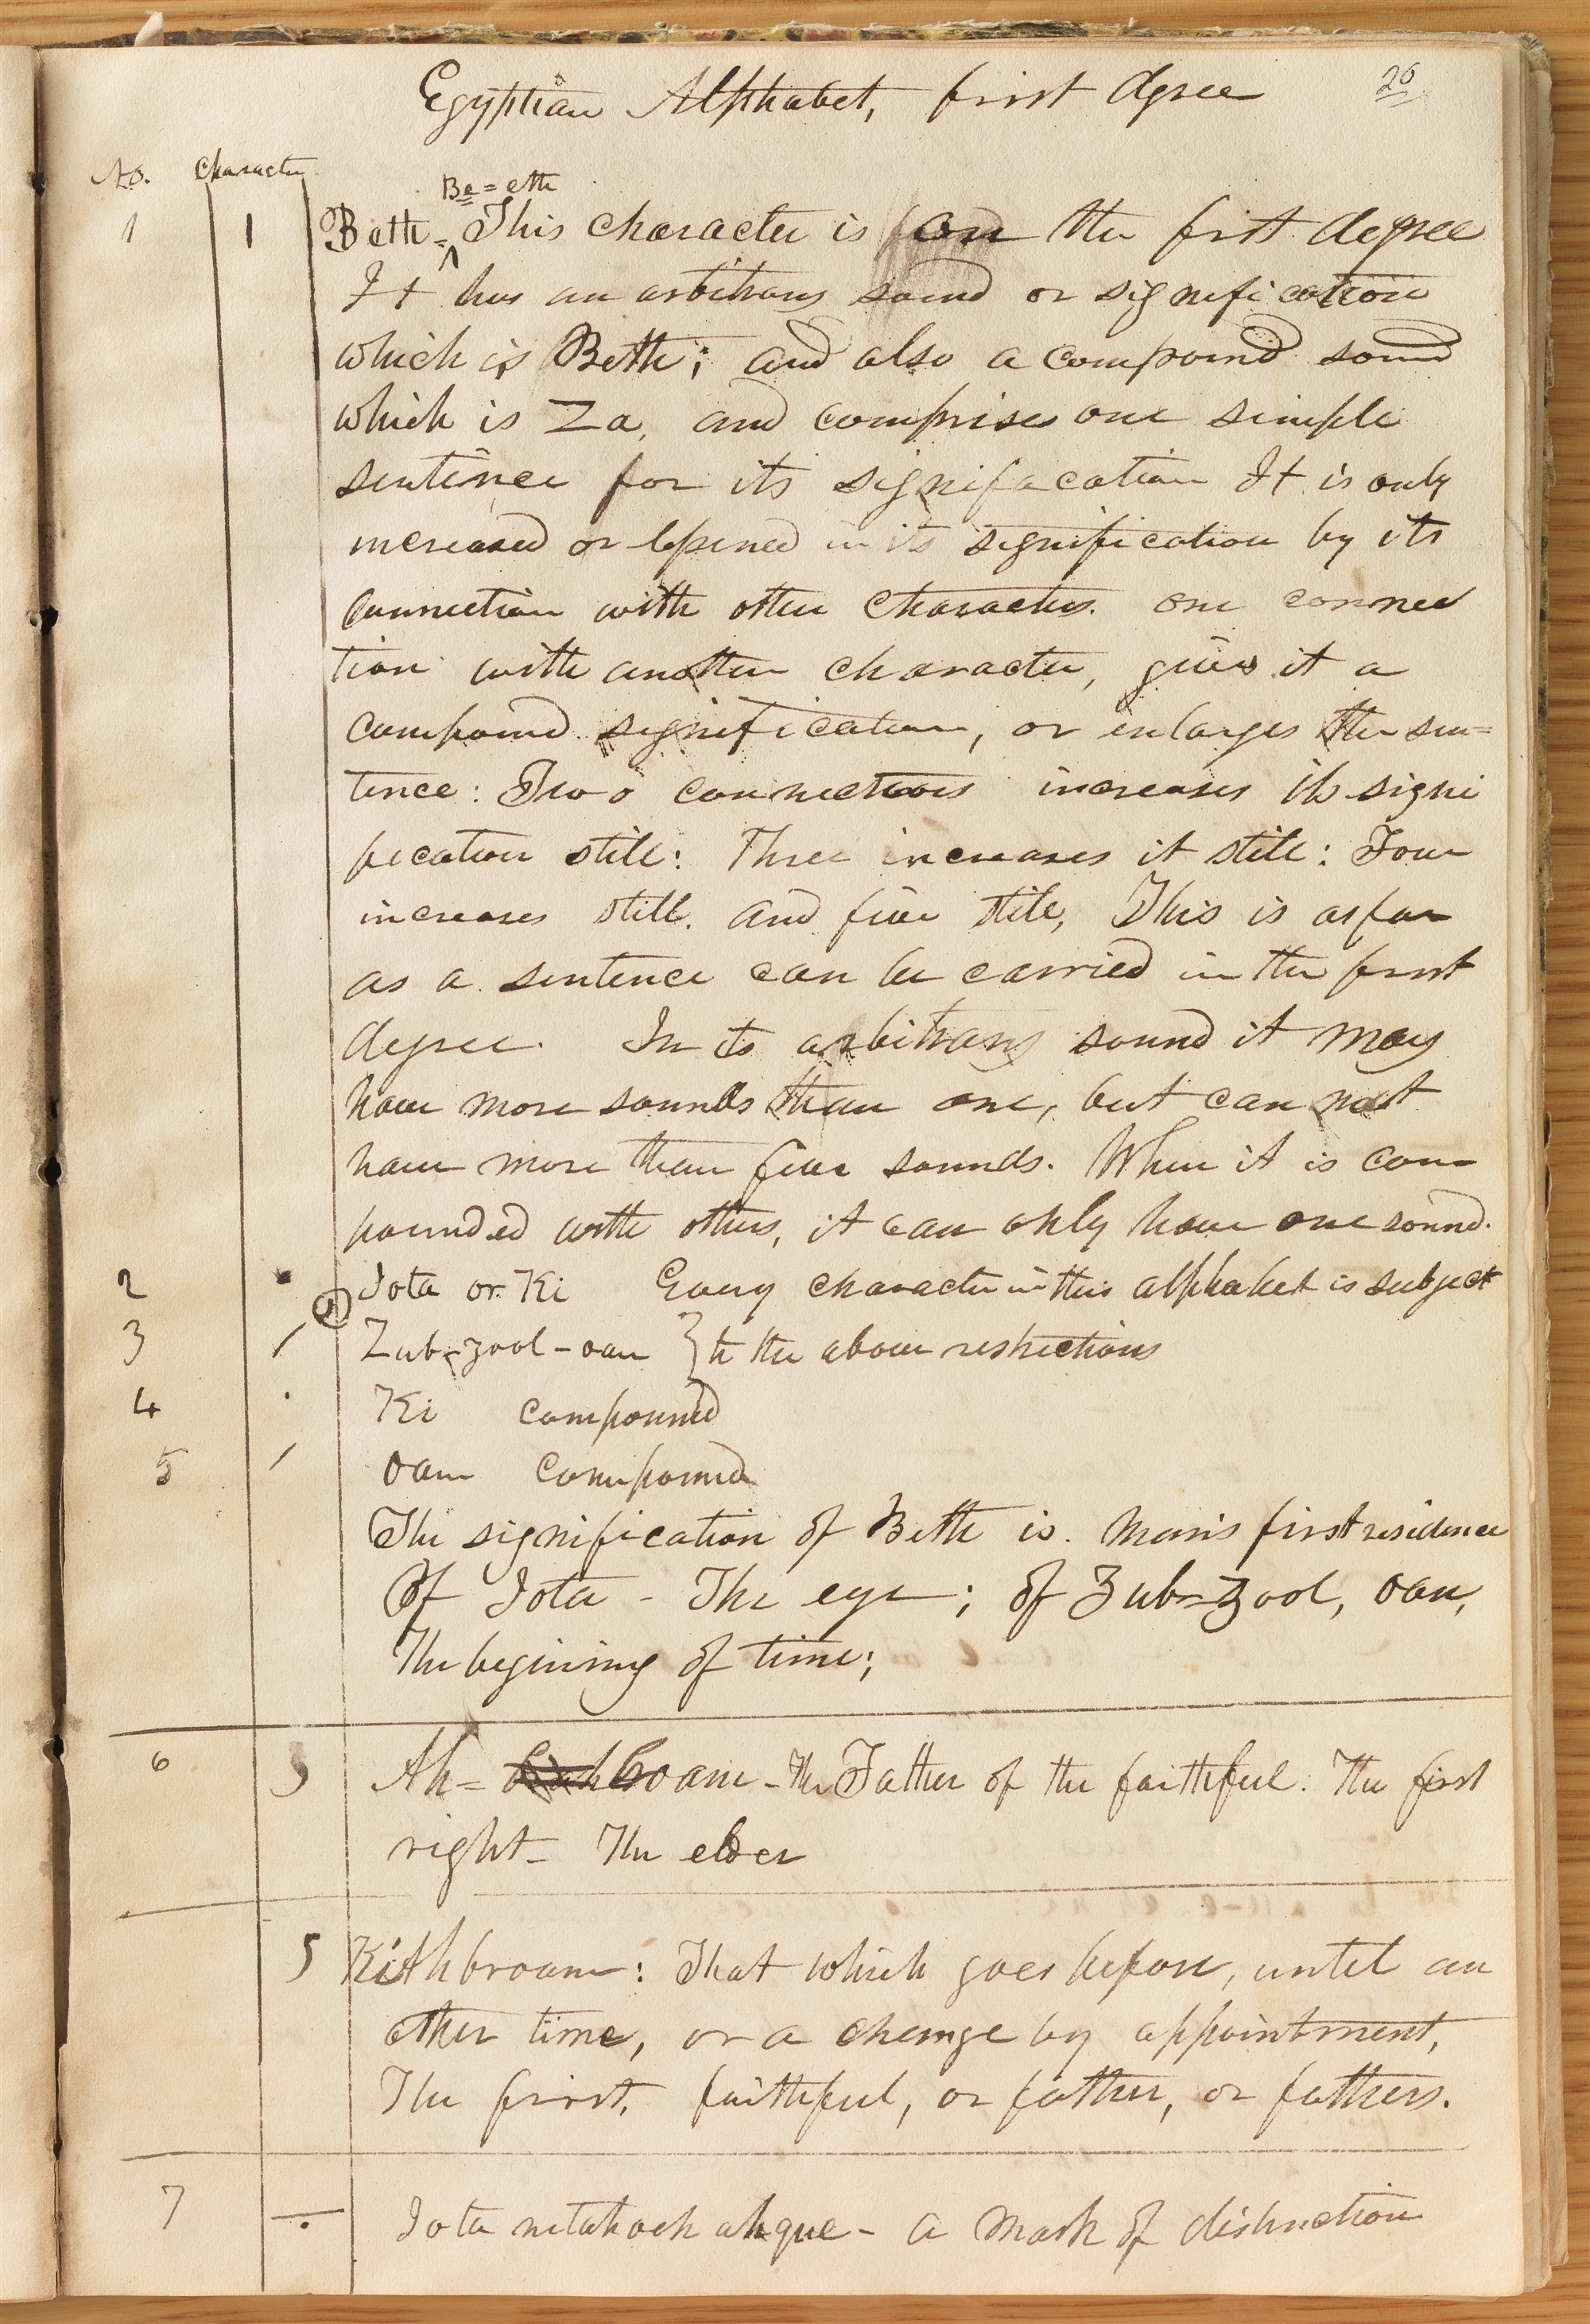 Egyptian Alphabet, first degree 26
No. Character
Be=eth
1 Beth = This character is in the first degree
It has an arbitrary sound or signification
which is Beth; and also a compound sound
which is Za, and comprises one simple
sentence for its signifacation It is only
increased or lessened in its signification by its
connection with other characters. one connec
tion with another character, gives it a
compound signification, or enlarges the sen=
tence: Two connections increases its signi
fication still: Three increases it still: Four
increases still. and five still, This is as far
as a sentence can be carried in the first
degree. In its arbitrary sound it may
have more sounds than one, but can not
have more than five sounds. When it is com
pounded with others, it can only have one sound.
2 Iota or Ki Every character in this alphabet is subject
3 Zub-zool-oan } to the above restrictions
4 Ki compound
5 oan compound
The signification of Beth is. man's first residence
Of Iota - The eye; of Zub=Zool, oan,
The begining of time;
6 Ah= broam - The Father of the faithful. The first
right - The elder
Kithbroam: That which goes before, until an
other time, or a change by appointment,
The first, faithful, or father, or fathers.
7 Iota netahoch ahque - a mark of distinction